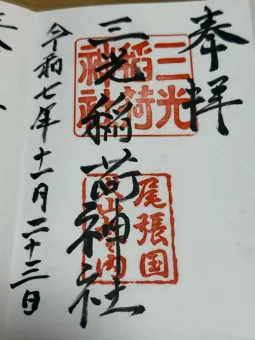 奉拝
三光稲荷神社
令和七年十一月二十三日
三光
稲荷
神社
尾張国
犬山